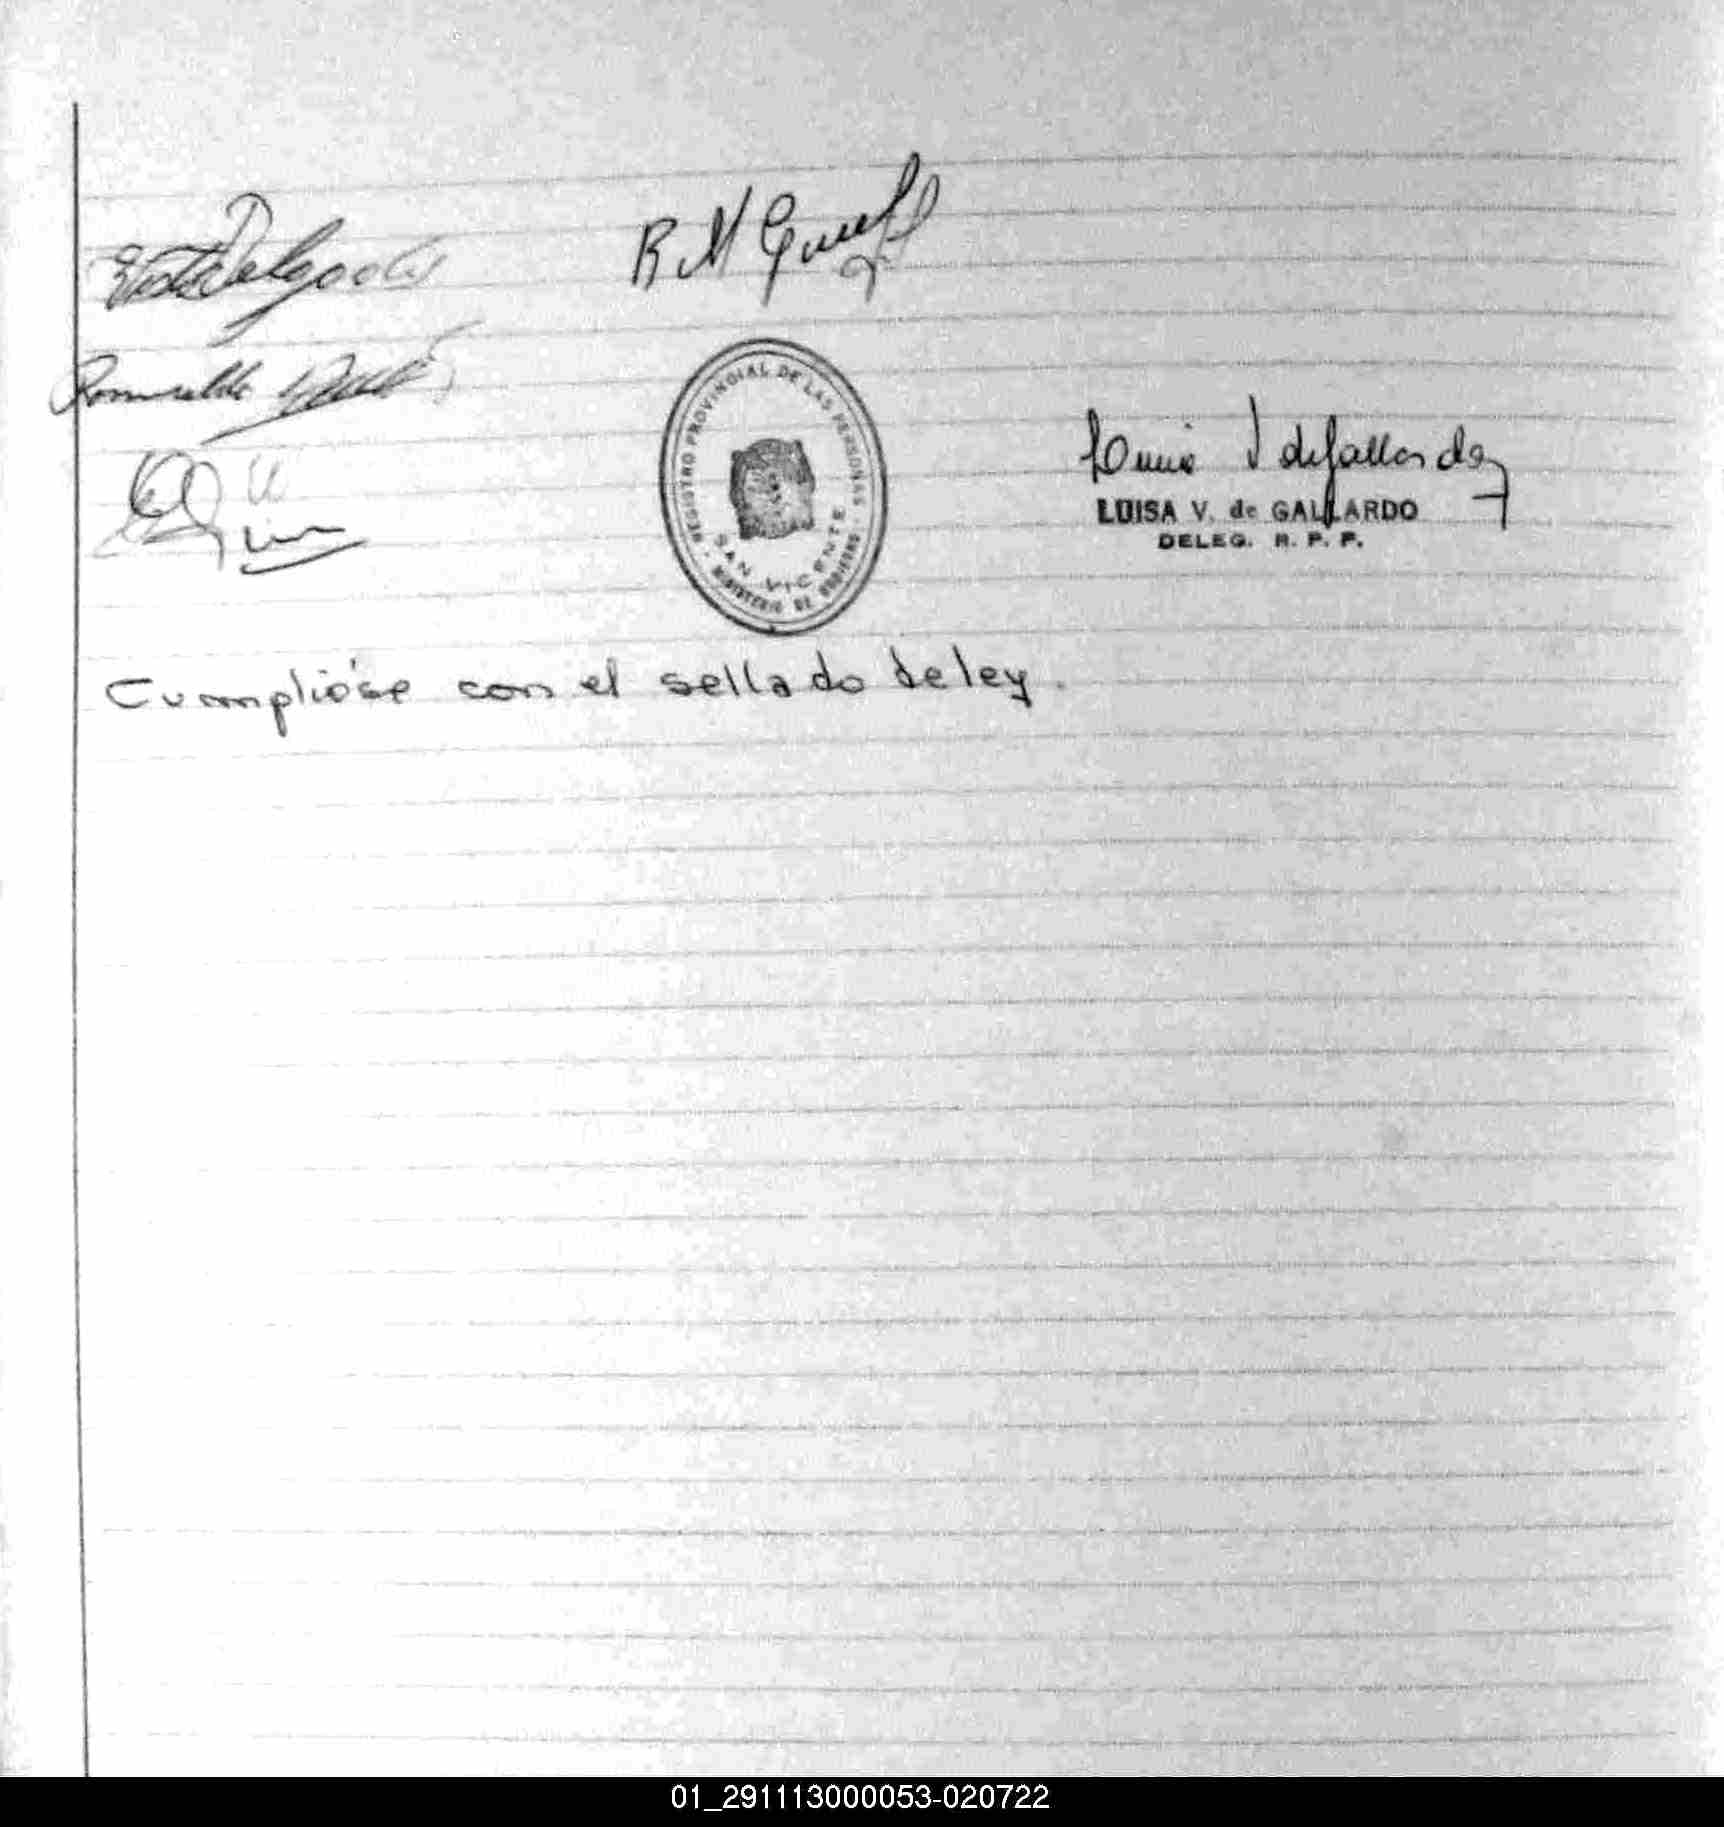 Delgado
R M
Romualdo
REGISTRO PROVINCIAL DE LAS PERSONAS
SAN VICENTE
MINISTERIO DE GOBIERNO
Luisa V de Gallardo
LUISA V. de GALLARDO
DELEG. R. P. P.
Cumplióse con el sellado de ley.
01_291113000053-020722